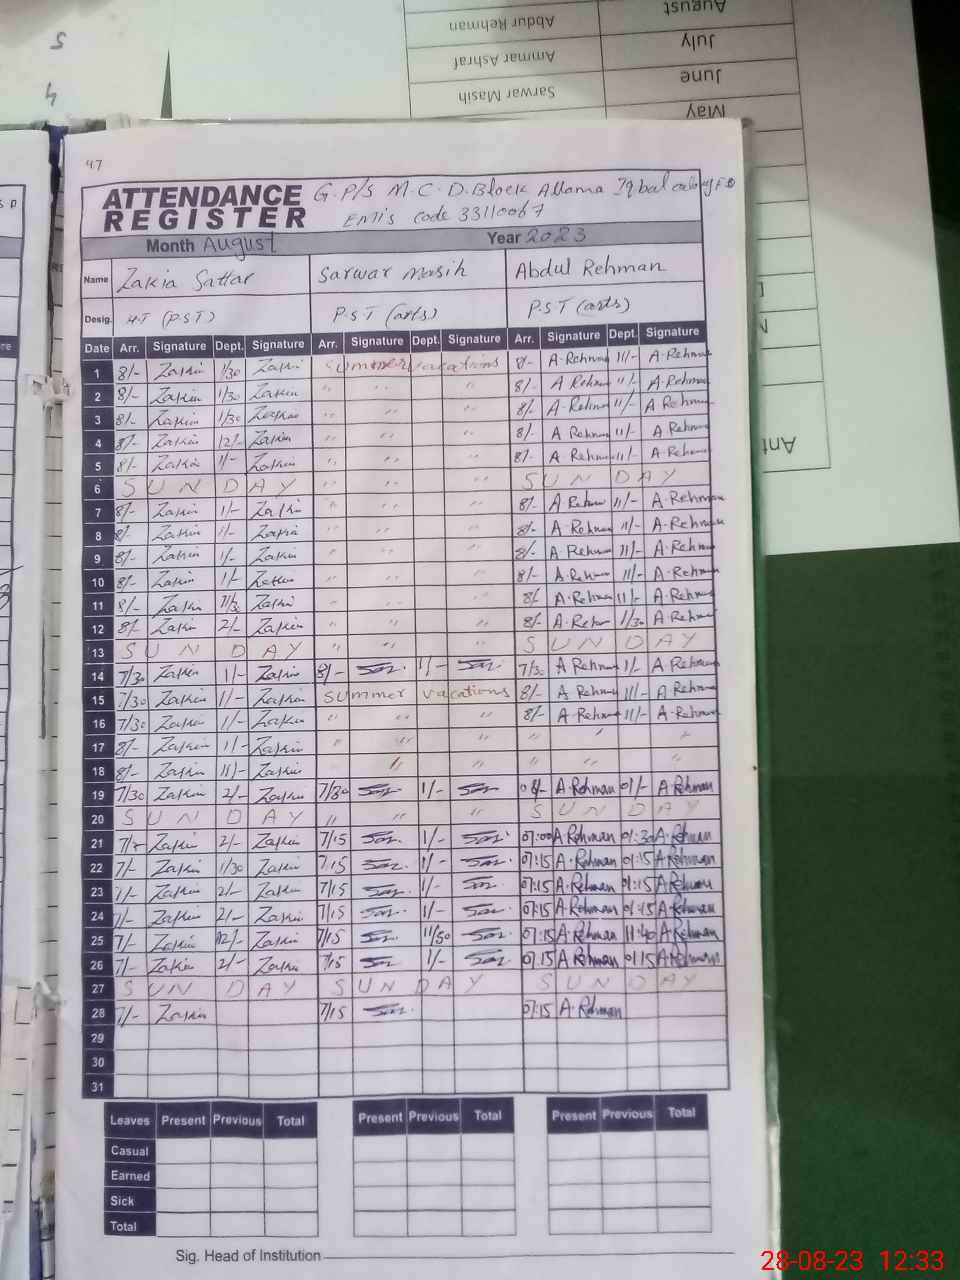 5
4
August
July
June
May
Abdur Rehman
Ammar Ashraf
Sarwar Masih
47
ATTENDANCE REGISTER G.P/S M.C.D.Block Allama Iqbal colony F.D
EMIS Code 33110067
Month August Year 2023
Name Zakia Sattar Sarwar Masih Abdul Rehman
Desig. H.T (P.S.T) P.S.T (arts) P.S.T (arts)
Date Arr. Signature Dept. Signature Arr. Signature Dept. Signature Arr. Signature Dept. Signature
1 8/- Zakia 1/30 Zakia summer vacations 8/- A-Rehman 11/- A-Rehman
2 8/- Zakia 1/30 Zakia " " " 8/- A Rehman 11/- A-Rehman
3 8/- Zakia 1/30 Zakia " " " 8/- A-Rehman 11/- A Rehman
4 8/- Zakia 12/- Zakia " " " 8/- A Rehman 11/- A Rehman
5 8/- Zakia 1/- Zakia " " " 8/- A-Rehman 11/- A-Rehman
6 SUNDAY " " " SUNDAY
7 8/- Zakia 1/- Zakia " " " 8/- A Rehman 11/- A-Rehman
8 8/- Zakia 1/- Zakia " " " 8/- A-Rehman 11/- A-Rehman
9 8/- Zakia 1/- Zakia " " " 8/- A-Rehman 11/- A-Rehman
10 8/- Zakia 1/- Zakia " " " 8/- A-Rehman 11/- A-Rehman
11 8/- Zakia 11/30 Zakia " " " 8/- A-Rehman 11/- A-Rehman
12 8/- Zakia 2/- Zakia " " " 8/- A-Rehman 1/30 A-Rehman
13 SUNDAY " " " SUNDAY
14 7/30 Zakia 1/- Zakia 8/- 1/- 7/30 A Rehman 1/- A-Rehman
15 7/30 Zakia 1/- Zakia summer vacations 8/- A Rehman 11/- A Rehman
16 7/30 Zakia 1/- Zakia " " " 8/- A-Rehman 11/- A-Rehman
17 8/- Zakia 1/- Zakia " " " " " "
18 8/- Zakia 11/- Zakia " " " " " "
19 7/30 Zakia 2/- Zakia 7/30 1/- 08/- A.Rehman 01/- A.Rehman
20 SUNDAY " " " SUNDAY
21 Zakia 2/- Zakia 7/15 1/- 07:00 A.Rehman 01:30 A.Rehman
22 7/- Zakia 1/30 Zakia 7/15 1/- 07:15 A.Rehman 01:15 A.Rehman
23 7/- Zakia 2/- Zakia 7/15 1/- 07:15 A.Rehman 01:15 A.Rehman
24 7/- Zakia 2/- Zakia 7/15 1/- 07:15 A.Rehman 01:15 A.Rehman
25 7/- Zakia 12/- Zakia 7/15 11/50 07:15 A.Rehman 11:40 A.Rehman
26 7/- Zakia 2/- Zakia 7/15 1/- 07:15 A.Rehman 01:15 A.Rehman
27 SUNDAY SUNDAY SUNDAY
28 7/- Zakia 7/15 07:15 A.Rehman
29
30
31
Leaves Present Previous Total Present Previous Total Present Previous Total
Casual
Earned
Sick
Total
Sig. Head of Institution
28-08-23 12:33